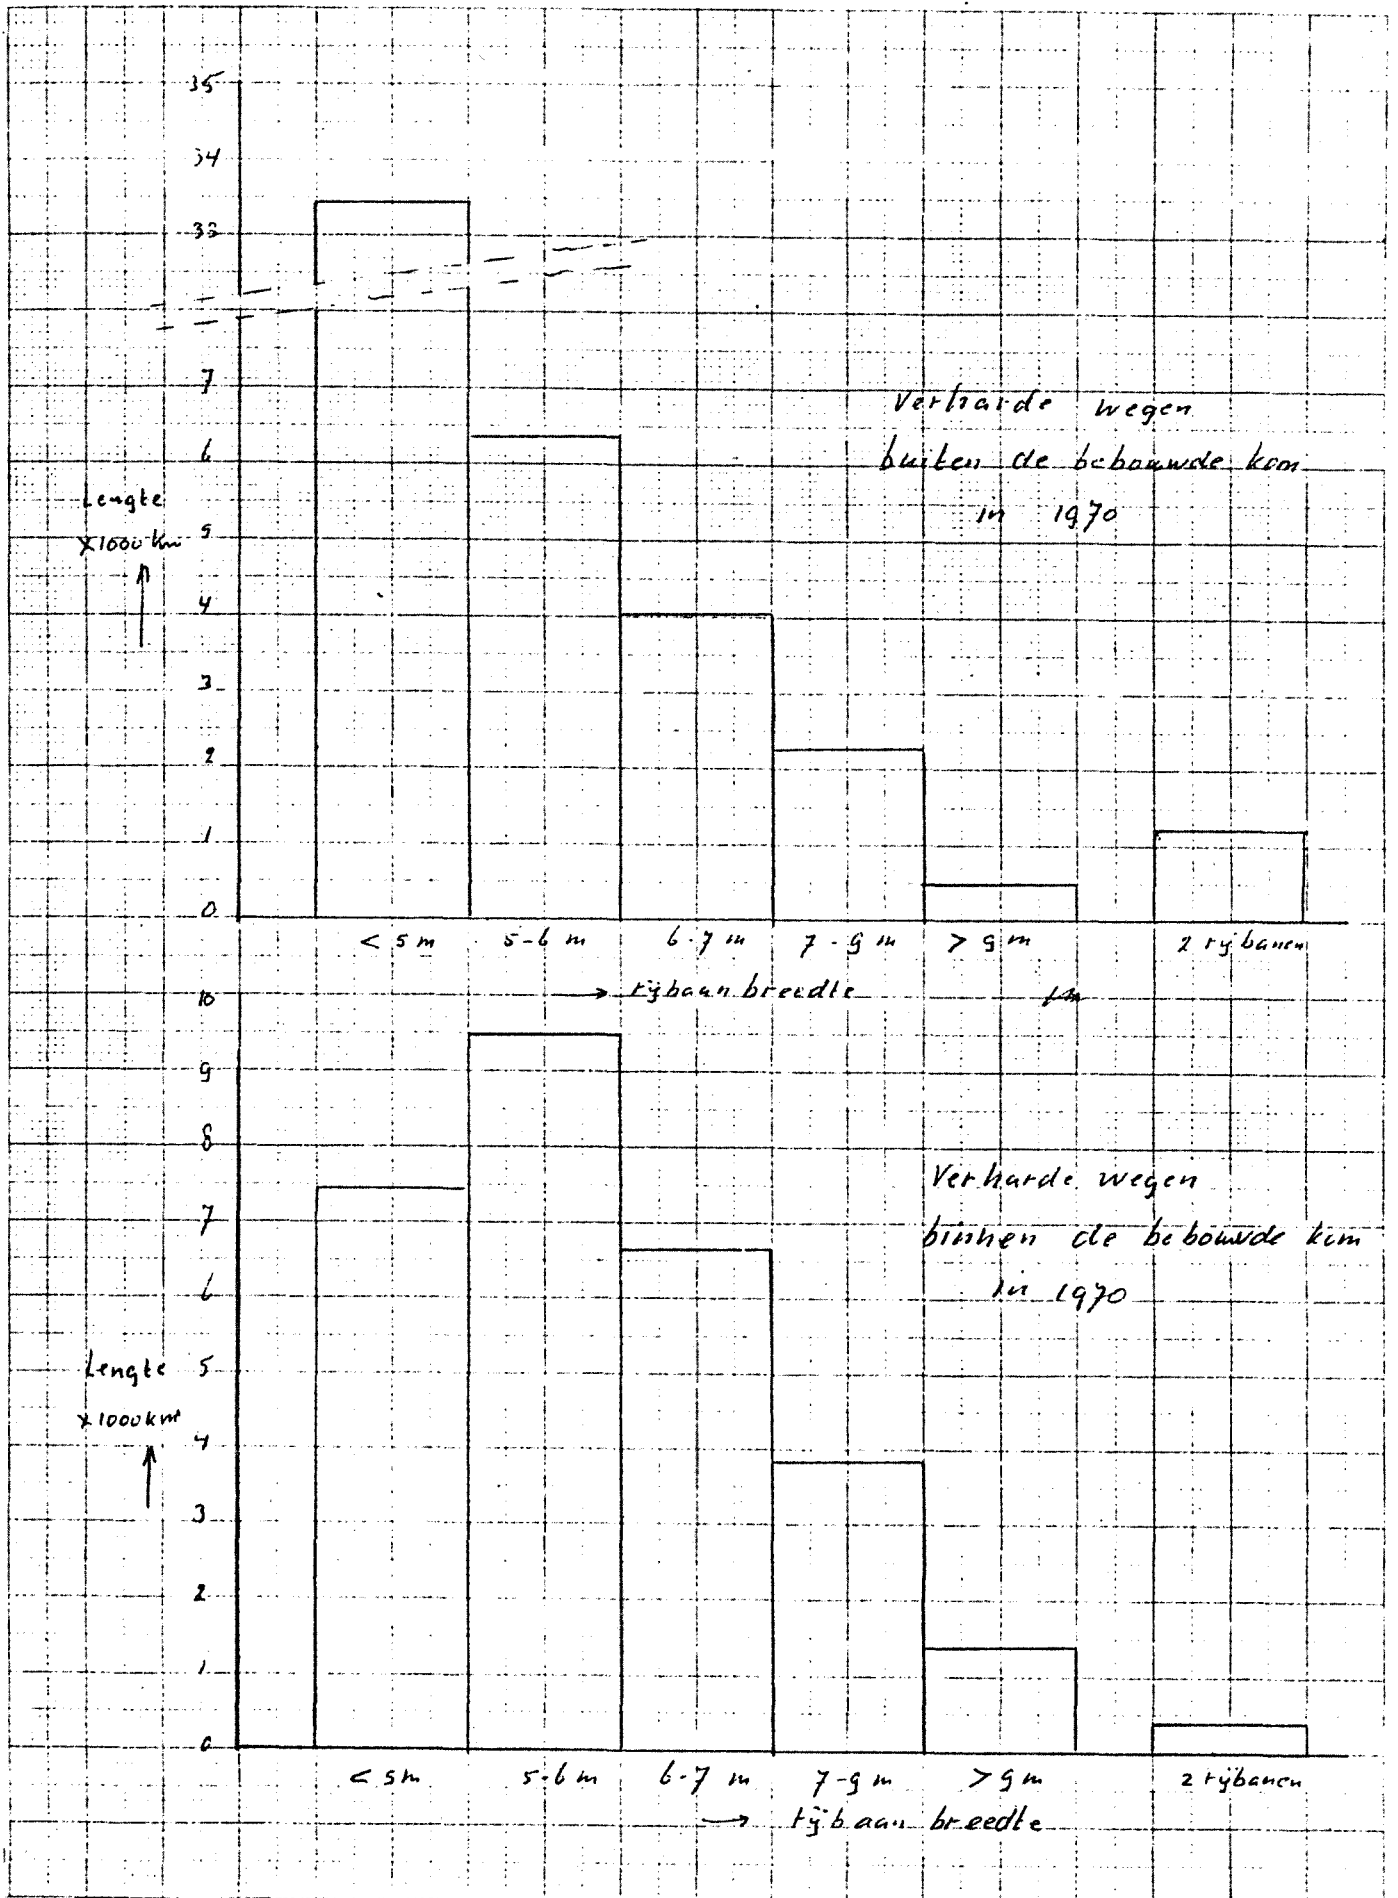 35
34
33
7
6
5
4
3
2
1
0
Lengte
x1000 km
Verharde wegen
buiten de bebouwde kom
in 1970
< 5 m 5-6 m 6-7 m 7-9 m > 9 m 2 rijbanen
→ rijbaan breedte
10
9
8
7
6
5
4
3
2
1
0
Lengte
x1000 km
Verharde wegen
binnen de bebouwde kom
in 1970
< 5m 5-6 m 6-7 m 7-9 m > 9 m 2 rijbanen
→ rijbaan breedte